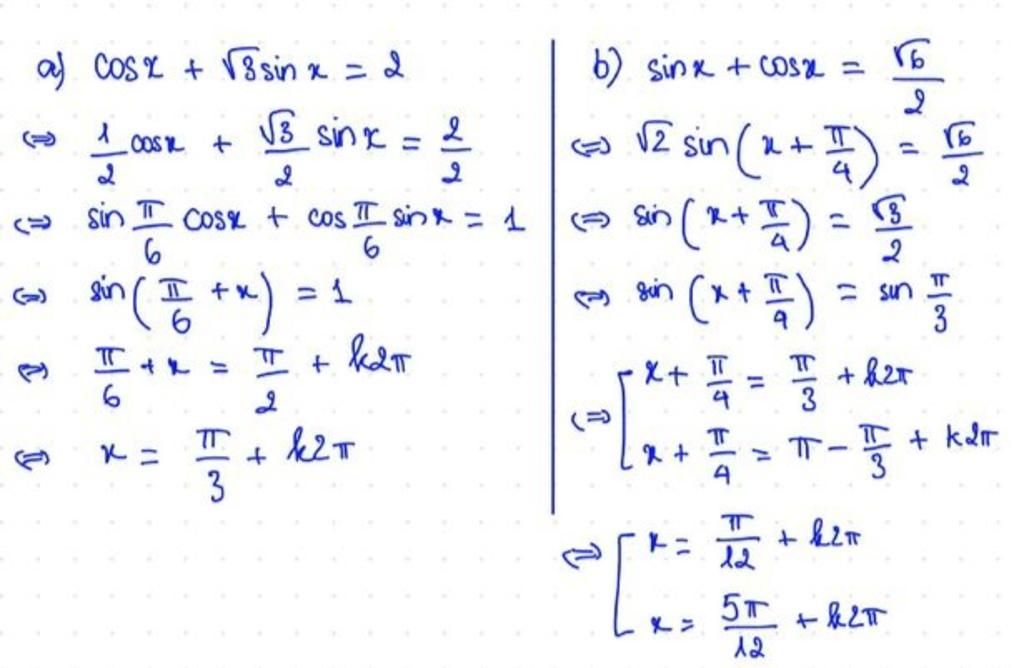 a) cosx + √3sin x = 2
⇔ 1/2 cosx + √3/2 sinx = 2/2
⇔ sin π/6 cosx + cos π/6 sinx = 1
⇔ sin(π/6 + x) = 1
⇔ π/6 + x = π/2 + k2π
⇔ x = π/3 + k2π
b) sinx + cosx = √6/2
⇔ √2 sin(x + π/4) = √6/2
⇔ sin(x + π/4) = √3/2
⇔ sin(x + π/4) = sin π/3
⇔ [ x + π/4 = π/3 + k2π
x + π/4 = π - π/3 + k2π
⇔ [ x = π/12 + k2π
x = 5π/12 + k2π